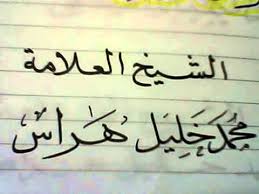 الشيخ العلامة
محمد خليل هراس